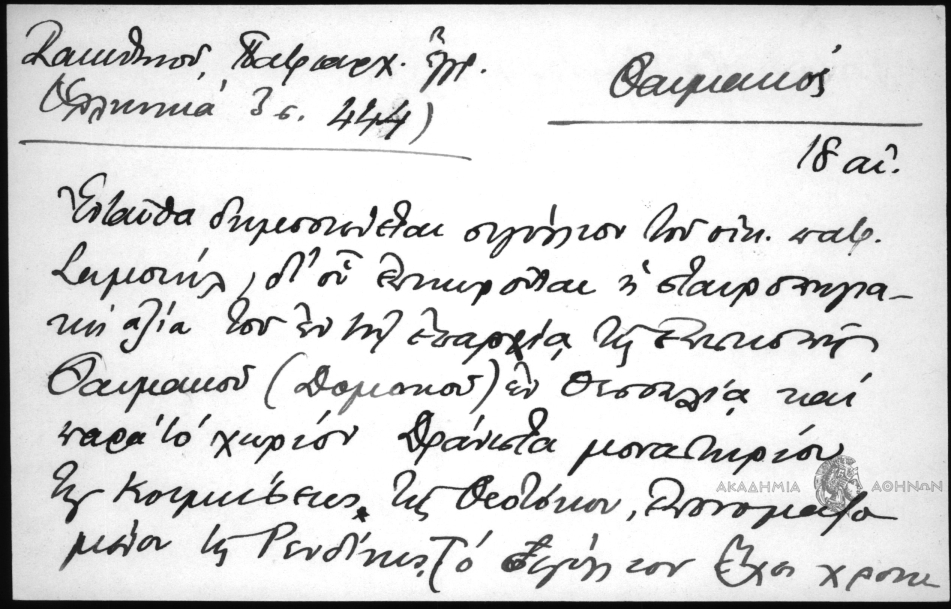 Ζακυθηνοῦ, Πατριαρχ. ἔγγ.
(Ἑλληνικά 3 σ. 444)
Θαυμακός
18 αἰ.
Ἐνταῦθα δημοσιεύεται σιγίλλιον τοῦ οἰκ. πατρ.
Σαμουήλ, δι' οὗ ἐπικυροῦται ἡ σταυροπηγια-
κή ἀξία τοῦ ἐν τῇ ἐπαρχίᾳ τῆς Ἐπισκοπῆς
Θαυμακοῦ (Δομοκοῦ) ἐν Θεσσαλίᾳ καί
παρά τό χωρίον Δράνιστα μοναστηρίου
τῆς Κοιμήσεως τῆς Θεοτόκου, ἐπονομαζο
μένου τῆς Ρενδίνης. Τό σιγίλλιον ἔχει χρονο
ΑΚΑΔΗΜΙΑ ΑΘΗΝΩΝ